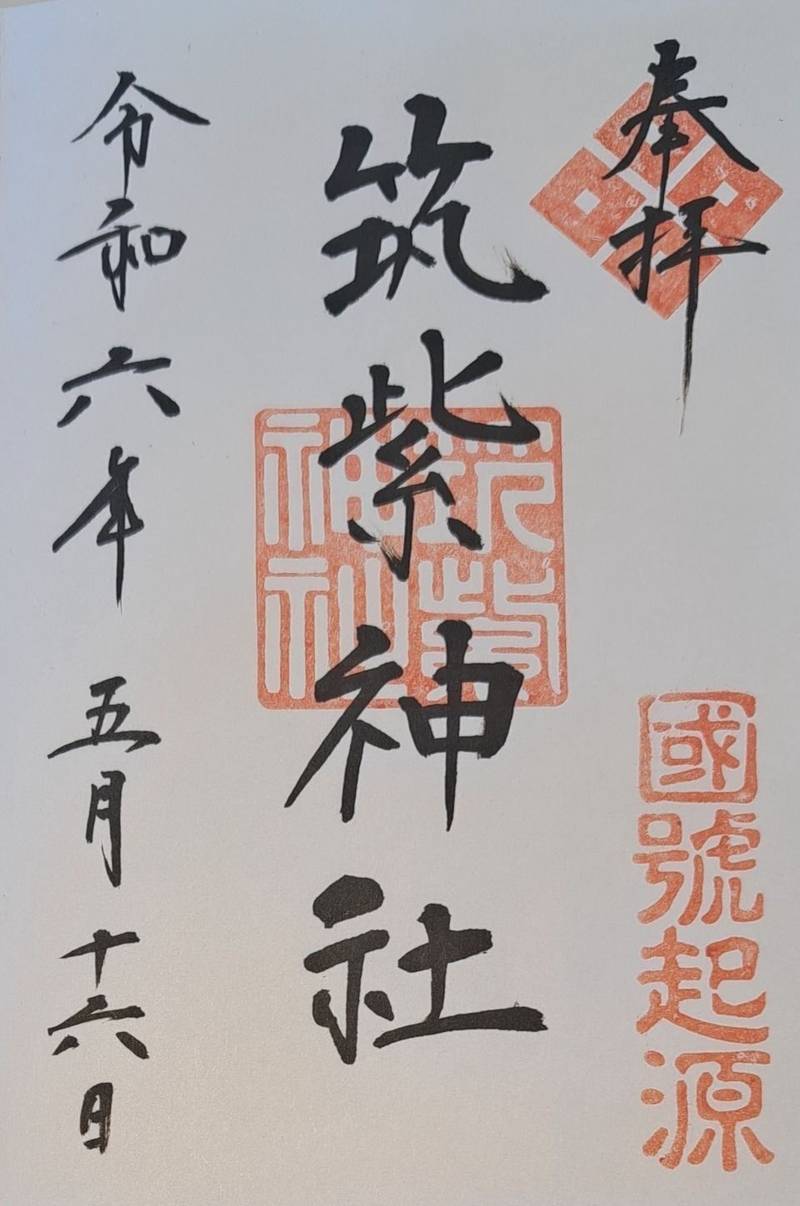 奉拝
國號起源
筑紫神社
筑紫神社
令和六年 五月十六日